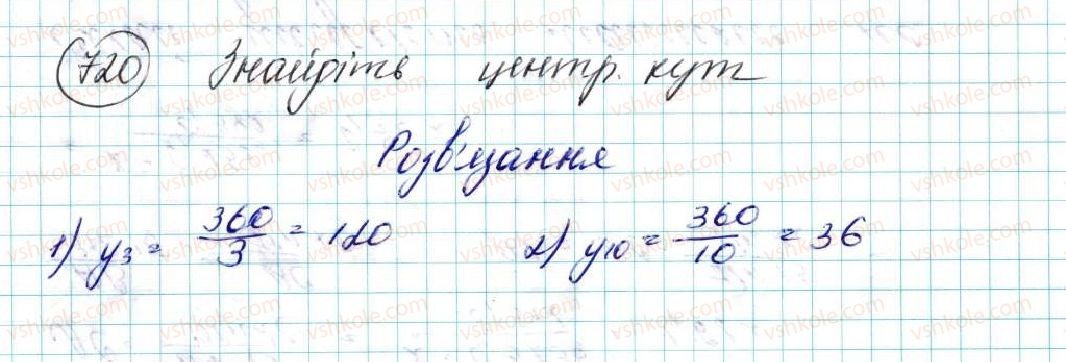 720 Знайдіть центр. кут
Розв'язання
1) y₃ = 360/3 = 120 2) y₁₀ = 360/10 = 36